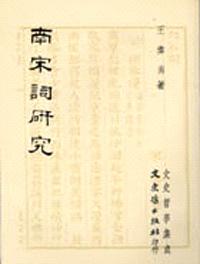 王偉勇著
文史哲學集成
文史哲出版社印行
南宋詞研究